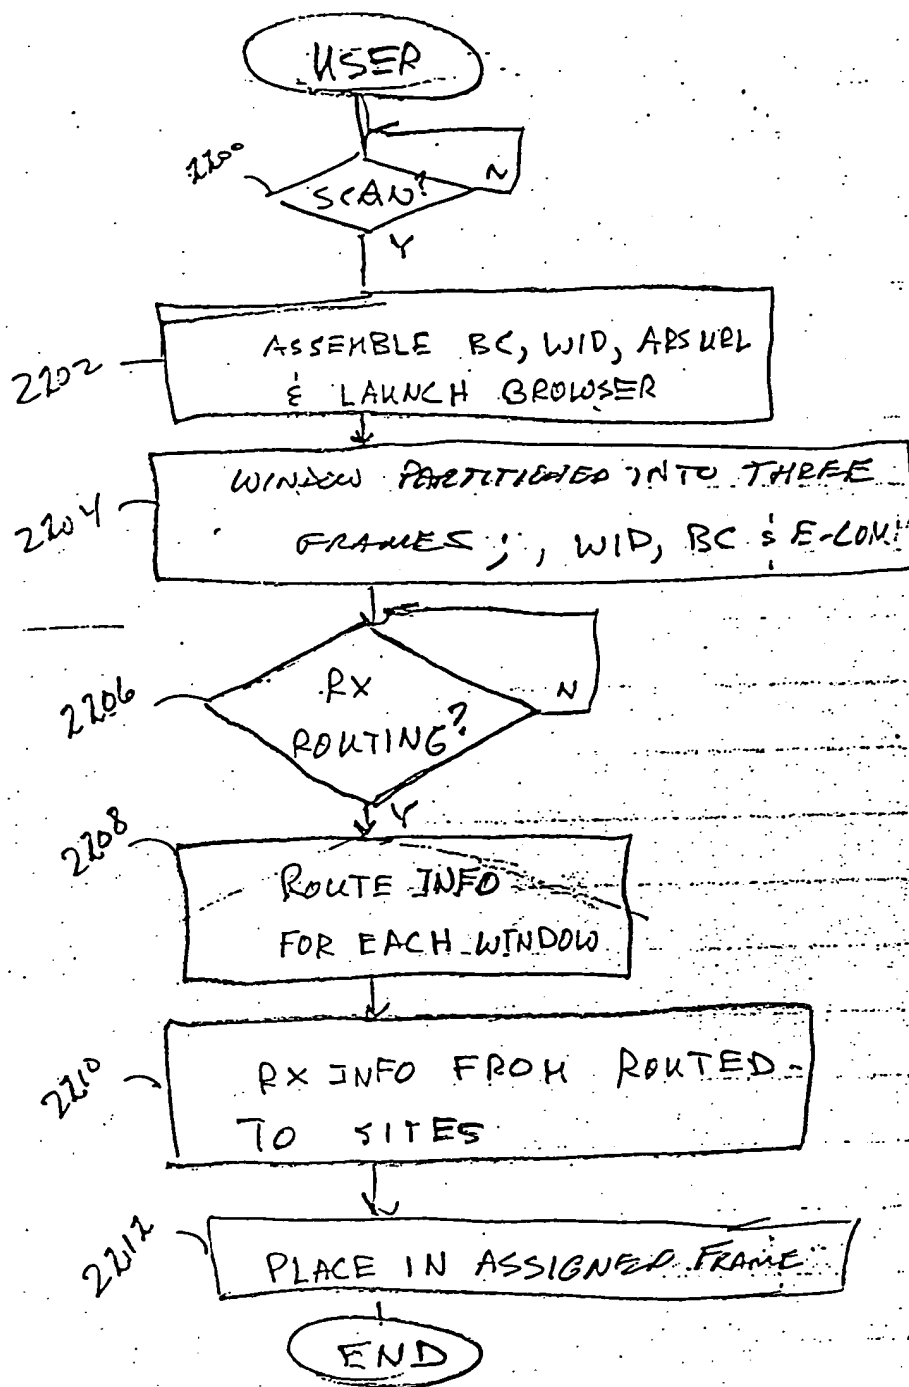 USER
2200
SCAN?
N
Y
2202
ASSEMBLE BC, WID, ARS URL
& LAUNCH BROWSER
2204
WINDOW PARTITIONED INTO THREE
FRAMES ; , WID, BC & E-COM
2206
RX
ROUTING?
N
Y
2208
ROUTE INFO
FOR EACH WINDOW
2210
RX INFO FROM ROUTED-
TO SITES
2212
PLACE IN ASSIGNED FRAME
END